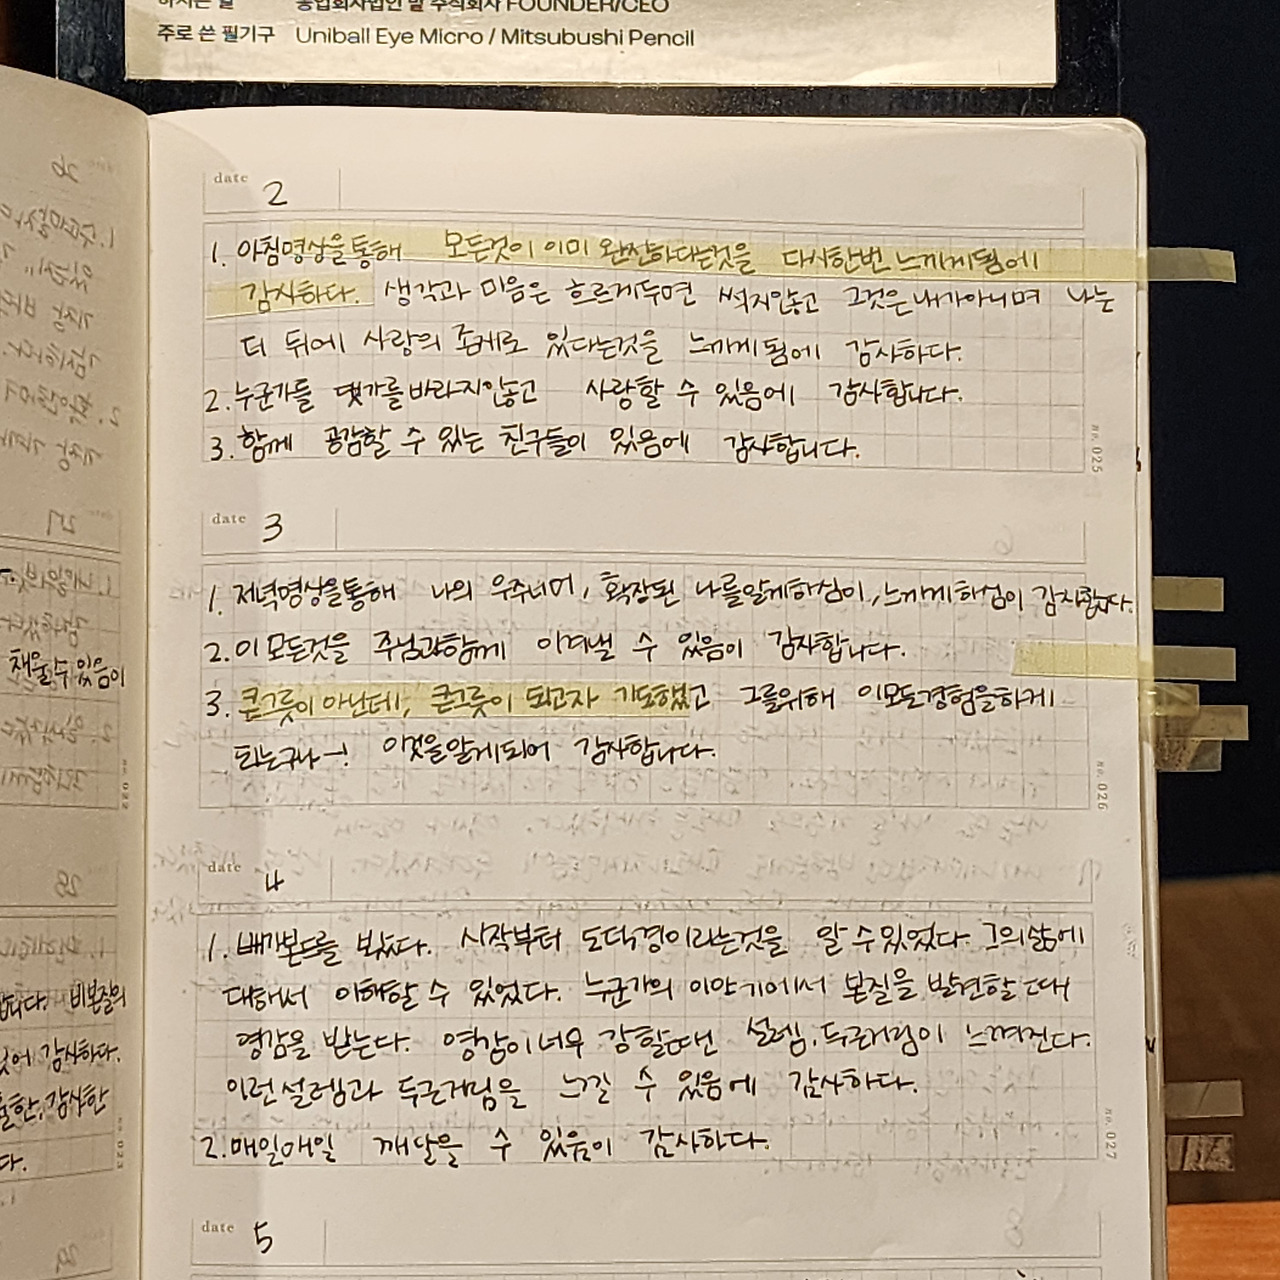 하시는 일 농업회사법인 팔 주식회사 FOUNDER/CEO
주로 쓴 필기구 Uniball Eye Micro / Mitsubushi Pencil
date 2
1. 아침명상을통해 모든것이 이미 완전하다는것을 다시한번 느끼게됨에
감사하다. 생각과 마음은 흐르게두면 썩지않고 그것은내가아니며 나는
더 뒤에 사랑의 존재로 있다는것을 느끼게됨에 감사하다.
2. 누군가를 댓가를바라지않고 사랑할 수 있음에 감사합니다.
3. 함께 공감할 수 있는 친구들이 있음에 감사합니다.
no. 025
date 3
1. 저녁명상을통해 나의 우주너머, 확장된 나를알게하심이, 느끼게하심이 감사합니다.
2. 이 모든것을 주님과함께 이겨낼 수 있음이 감사합니다.
3. 큰그릇이 아닌데, 큰그릇이 되고자 기도했고 그를위해 이모든경험을하게
되는구나-! 이것을알게되어 감사합니다.
no. 026
date 4
1. 배가본드를 봤다. 시작부터 도덕경이라는것을 알 수 있었다. 그의 삶에
대해서 이해할 수 있었다. 누군가의 이야기에서 본질을 발견할 때
영감을 받는다. 영감이 너무 강할때면 설렘, 두근거림이 느껴진다.
이런 설렘과 두근거림을 느낄 수 있음에 감사하다.
2. 매일매일 깨달을 수 있음이 감사하다.
no. 027
date 5
채울 수 있음이
no. 022
비본질의
감사하다.
감사한
no. 023